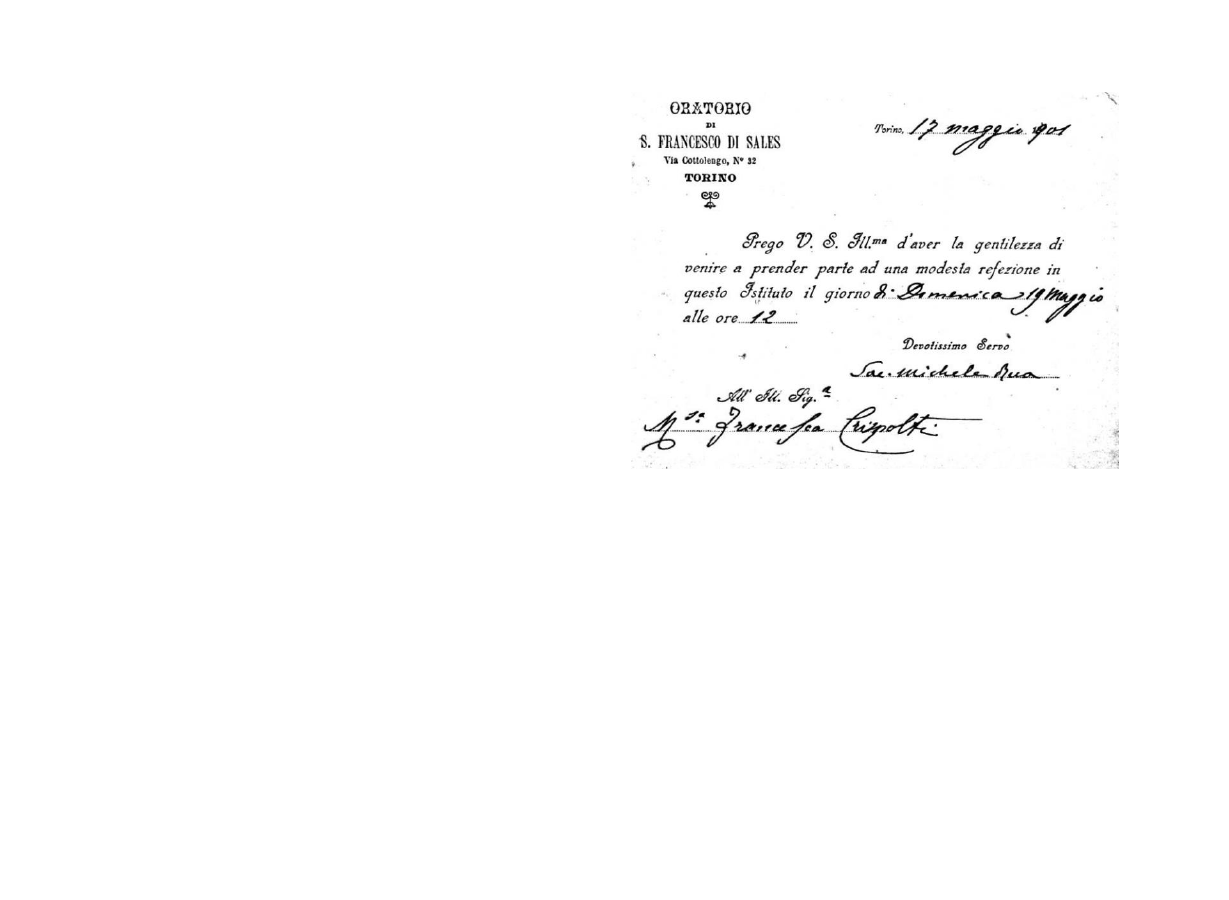 ORATORIO
DI
S. FRANCESCO DI SALES
Via Cottolengo, N° 32
TORINO
Torino, 17 maggio 1901
Prego V. S. Ill.ma d'aver la gentilezza di
venire a prender parte ad una modesta refezione in
questo Istituto il giorno di Domenica 19 Maggio
alle ore 12
Devotissimo Servo
Sac. Michele Rua
All' Ill. Sig.a
M.sa Francesca Crispolti